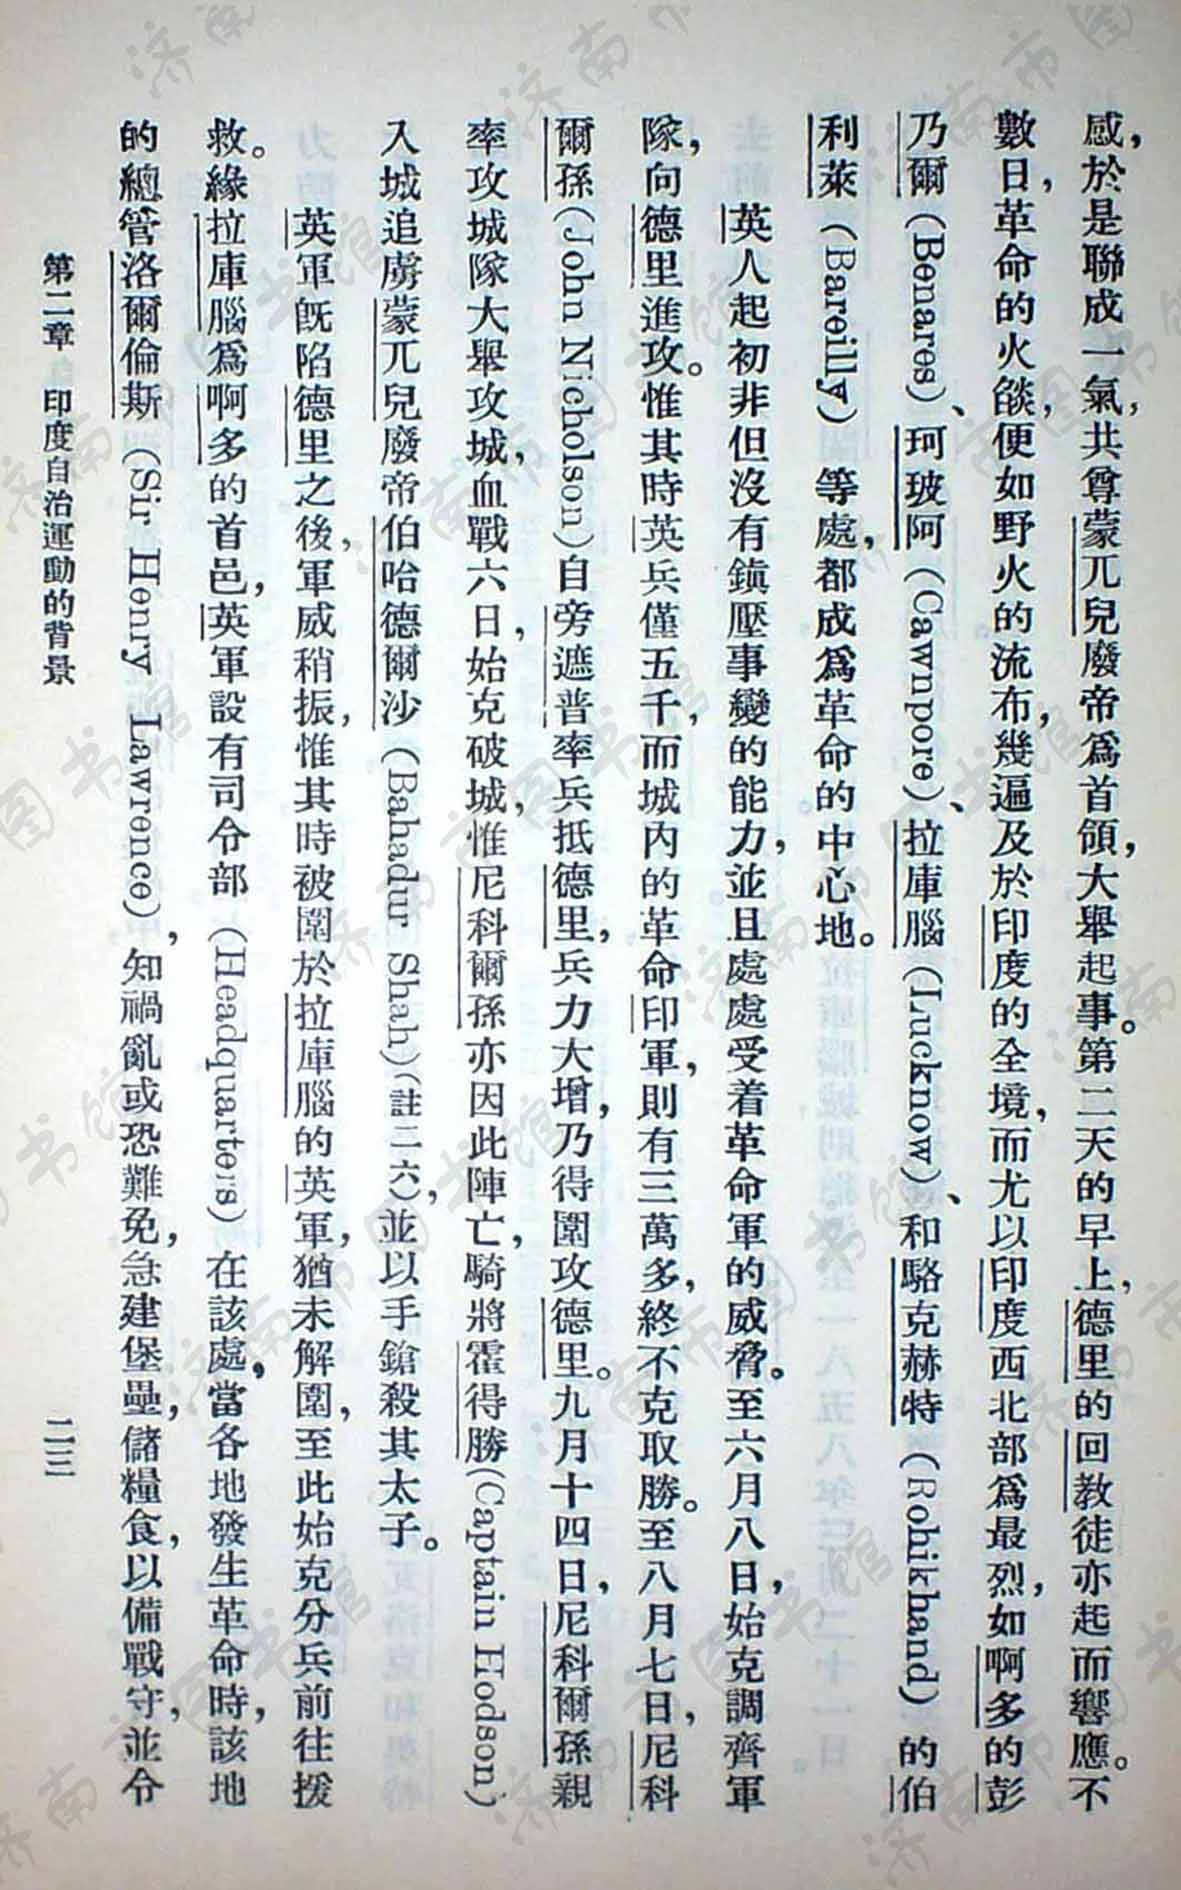 感，於是聯成一氣，共尊蒙兀兒廢帝爲首領，大舉起事。第二天的早上，德里的回教徒亦起而響應。不
數日，革命的火燄，便如野火的流布，幾遍及於印度的全境，而尤以印度西北部爲最烈，如啊多的彭
乃爾（Benares）、珂玻阿（Cawnpore）、拉庫腦（Lucknow）、和駱克赫特（Rohikhand）的伯
利萊（Bareilly）等處，都成爲革命的中心地。
英人起初非但沒有鎮壓事變的能力，並且處處受着革命軍的威脅。至六月八日，始克調齊軍
隊，向德里進攻。惟其時英兵僅五千，而城內的革命印軍，則有三萬多，終不克取勝。至八月七日，尼科
爾孫（John Nicholson）自旁遮普率兵抵德里，兵力大增，乃得圍攻德里。九月十四日，尼科爾孫親
率攻城隊大舉攻城，血戰六日，始克破城，惟尼科爾孫亦因此陣亡，騎將霍得勝（Captain Hodson）
入城追虜蒙兀兒廢帝伯哈德爾沙（Bahadur Shah）（註二六），並以手鎗殺其太子。
英軍旣陷德里之後，軍威稍振，惟其時被圍於拉庫腦的英軍，猶未解圍，至此始克分兵前往援
救。緣拉庫腦爲啊多的首邑，英軍設有司令部（Headquarters）在該處，當各地發生革命時，該地
的總管洛爾倫斯（Sir Henry Lawrence），知禍亂或恐難免，急建堡壘，儲糧食，以備戰守，並令
第二章 印度自治運動的背景
二三
济南市图书馆